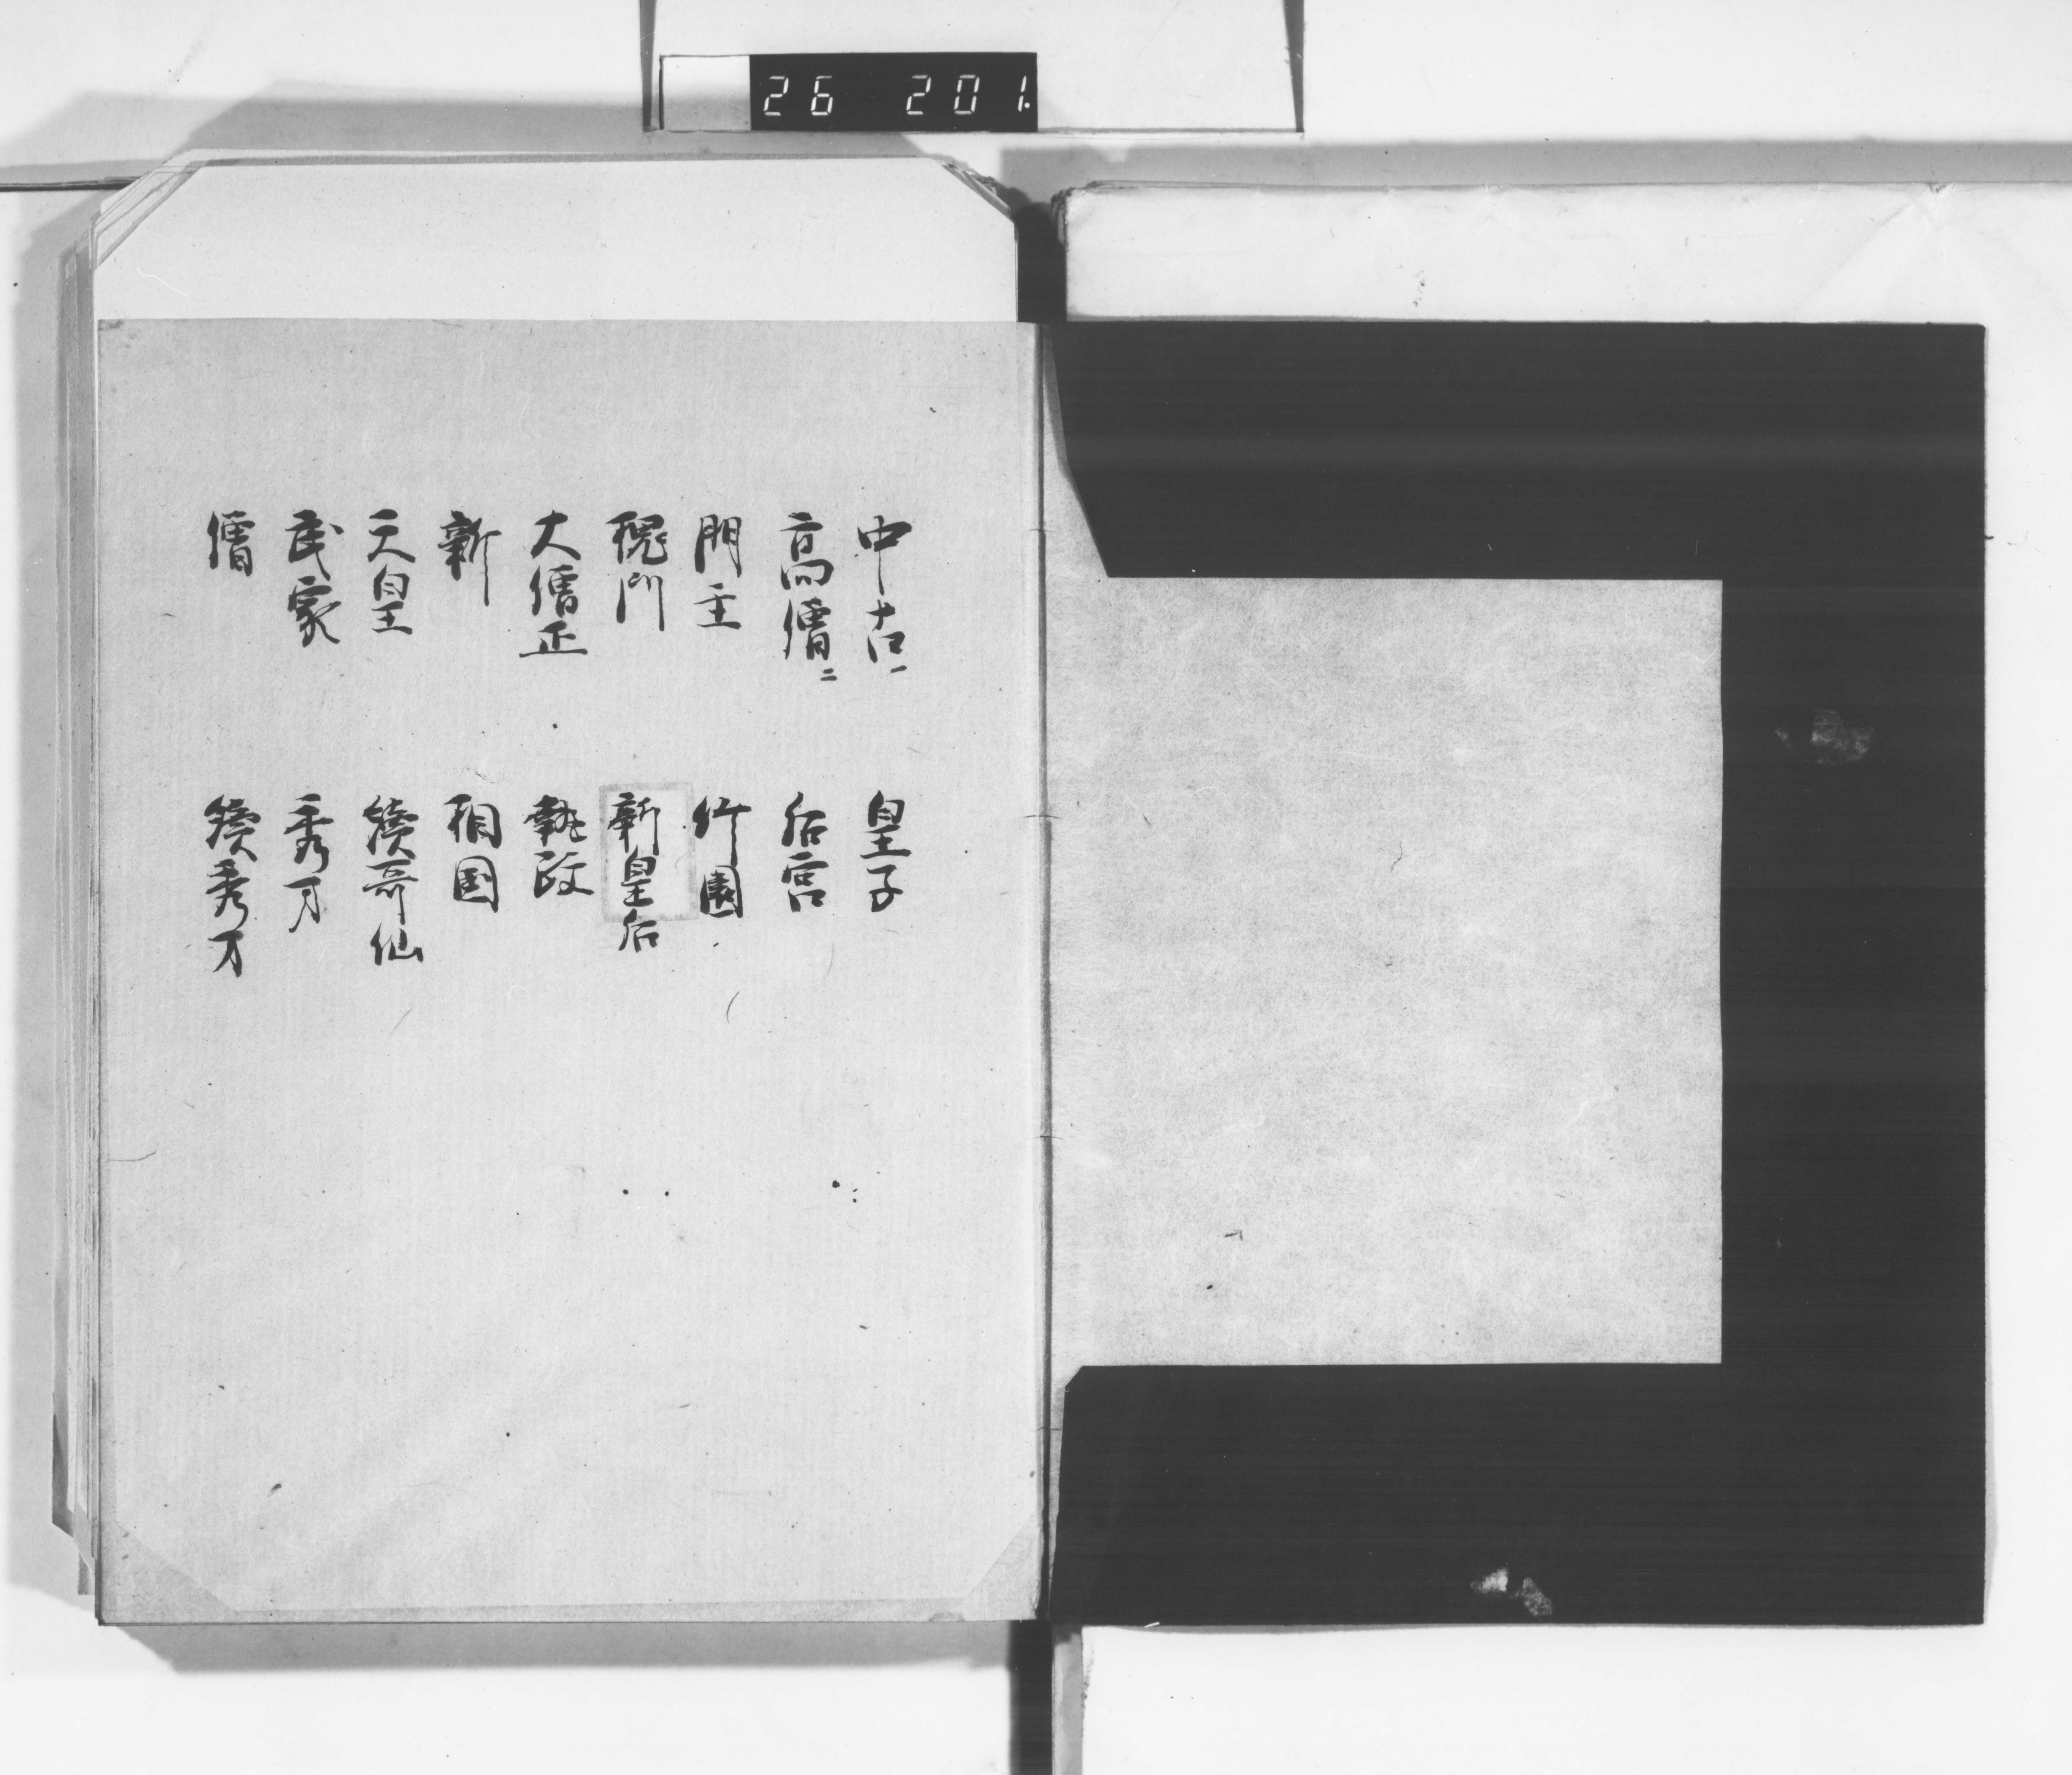 26 201
中古一
皇子
高僧二
后宮
門主
竹園
新皇后
大僧正
執政
新
相国
天皇
続哥仙
武家
秀才
僧
続秀才